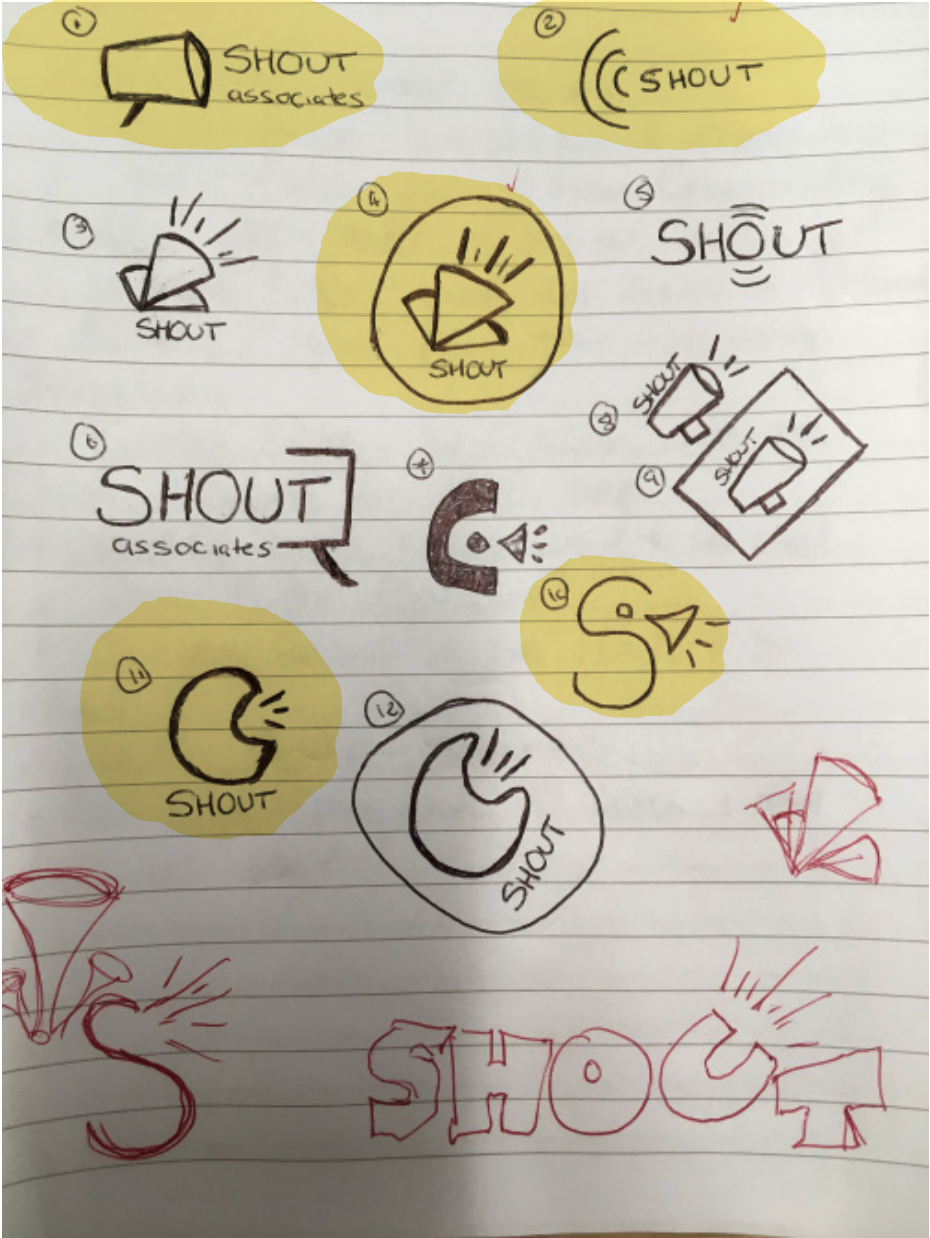 1
SHOUT
associates
2
SHOUT
3
SHOUT
4
SHOUT
5
SHOUT
6
SHOUT
associates
8
SHOUT
9
SHOUT
10
S
11
SHOUT
12
SHOUT
S
SHOUT